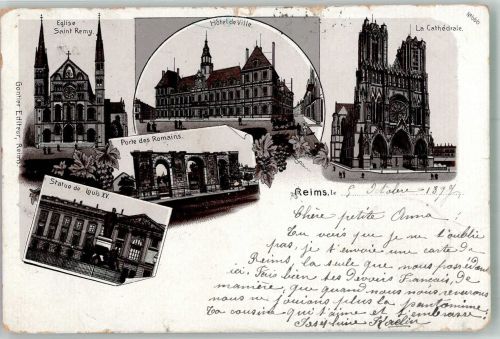 Eglise
Saint Remy.
Hôtel de Ville.
La Cathédrale.
Gontier Editeur, Reims
Porte des Romains.
Statue de Louis XV.
Reims, le 5 Octobre 1897
Chère petite Anna!
Tu vois que je ne t'oublie
pas, je t'envoie une carte de
Reims, la seule que nous possédons
ici. Fais bien tes Devoirs Français, de
manière, que quand nous nous reverrons
nous ne jouions plus la pantomime.
Ta cousine qui t'aime et t'embrasse
Joséphine